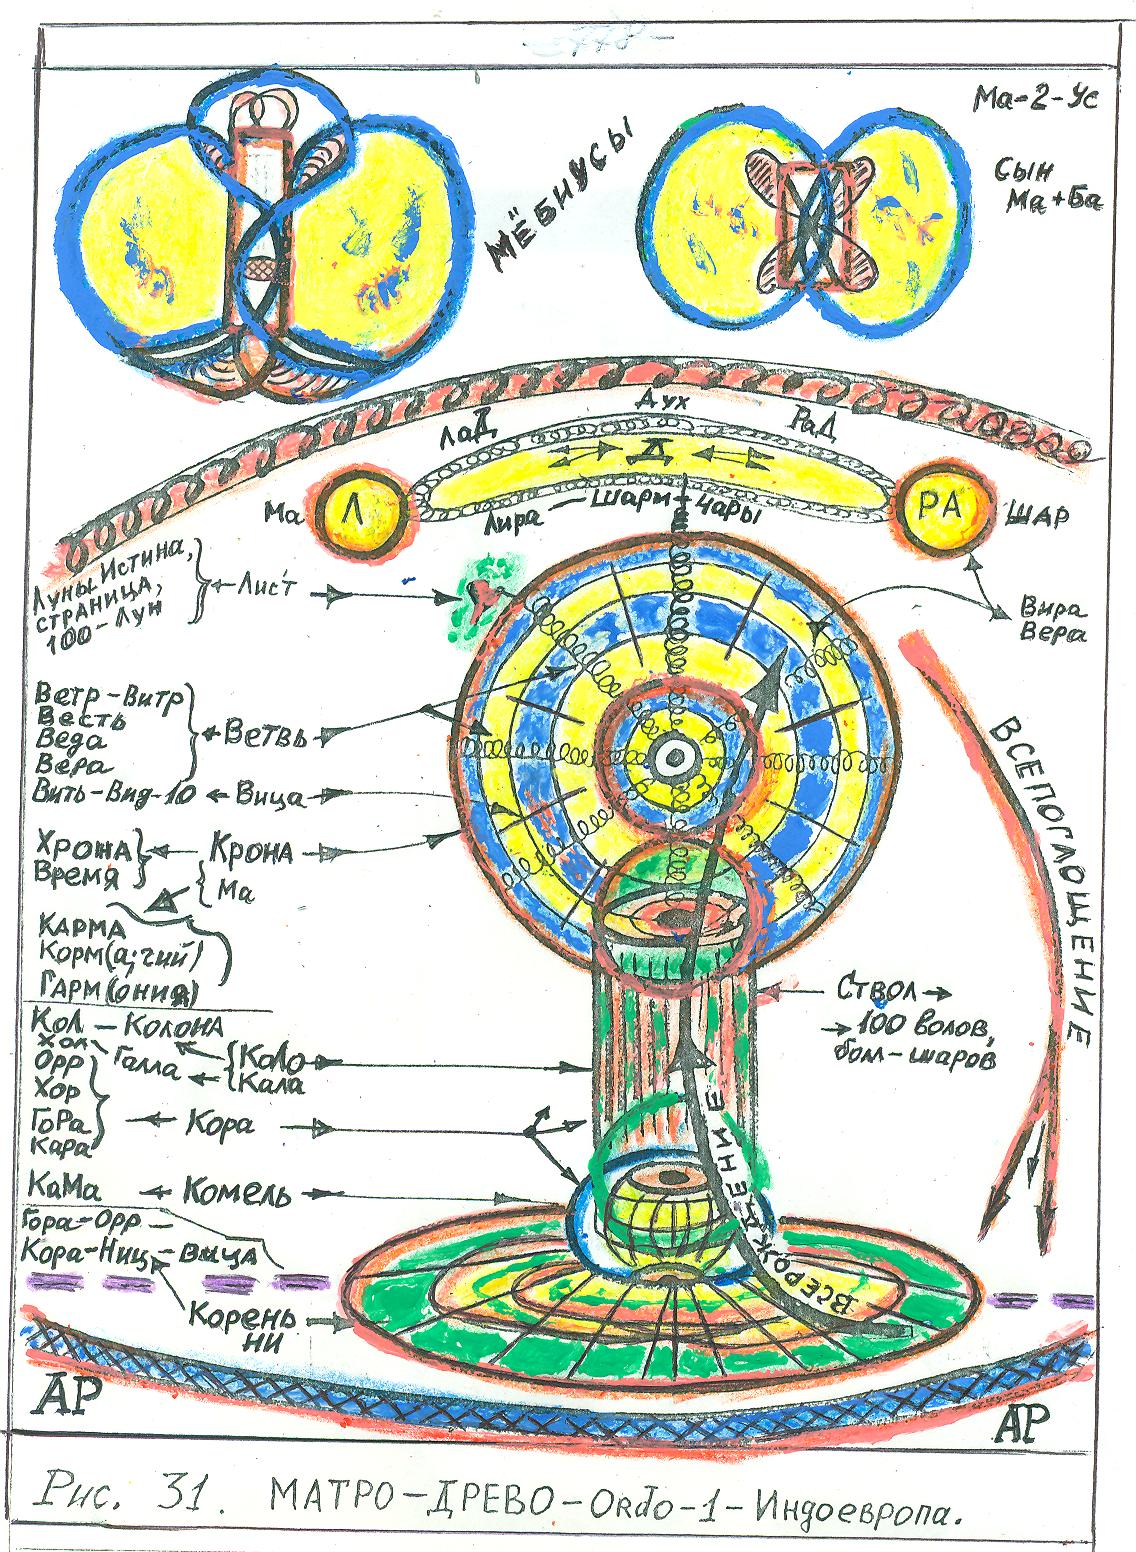 -778-
Ма-2-Ус
МЁБИУСЫ
Сын
Ма+Ба
ЛаД
Дух
РаД
Д
Ма
Л
РА
ШАР
Лира — Шари+чары
Луны Истина,
страница,
100-Лун
Лист
Вира
Вера
Ветр-Витр
Весть
Веда
Вера
Ветвь
Вить-Вид-10
Вица
ВСЕПОГЛОЩЕНИЕ
Хрона
Время
Крона
Ма
Карма
Корм(а;чий)
Гарм(ония)
Ствол
100 волов,
болл-шаров
Кол — Колона
Хол
Галла
Коло
Кала
Орр
Хор
ГоРа
Кара
Кора
КаМа
Комель
Гора-Орр —
Кора-Ниц-Вица
ВСЕРОЖДЕНИЕ
Корень
ни
АР
АР
Рис. 31. МАТРО-ДРЕВО-Ordo-1-Индоевропа.